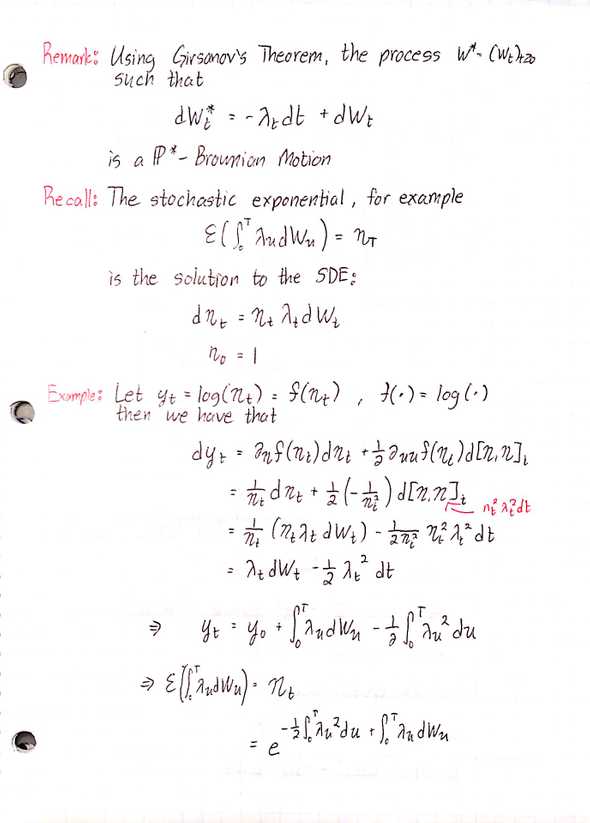 Remark: Using Girsanov's Theorem, the process W* = (W_t)_{t≥0}
such that
dW_t^* = -λ_t dt + dW_t
is a ℙ* - Brownian Motion
Recall: The stochastic exponential, for example
ℰ(∫_0^T λ_u dW_u) = η_T
is the solution to the SDE:
dη_t = η_t λ_t dW_t
η_0 = 1
Example: Let y_t = log(η_t) = f(η_t) , f(·) = log(·)
then we have that
dy_t = ∂_η f(η_t) dη_t + 1/2 ∂_{ηη} f(η_t) d[η,η]_t
= 1/η_t dη_t + 1/2 (-1/η_t^2) d[η,η]_t ← η_t^2 λ_t^2 dt
= 1/η_t (η_t λ_t dW_t) - 1/(2η_t^2) η_t^2 λ_t^2 dt
= λ_t dW_t - 1/2 λ_t^2 dt
⇒ y_t = y_0 + ∫_0^T λ_u dW_u - 1/2 ∫_0^T λ_u^2 du
⇒ ℰ(∫_0^T λ_u dW_u) = η_t
= e^{-1/2 ∫_0^T λ_u^2 du + ∫_0^T λ_u dW_u}